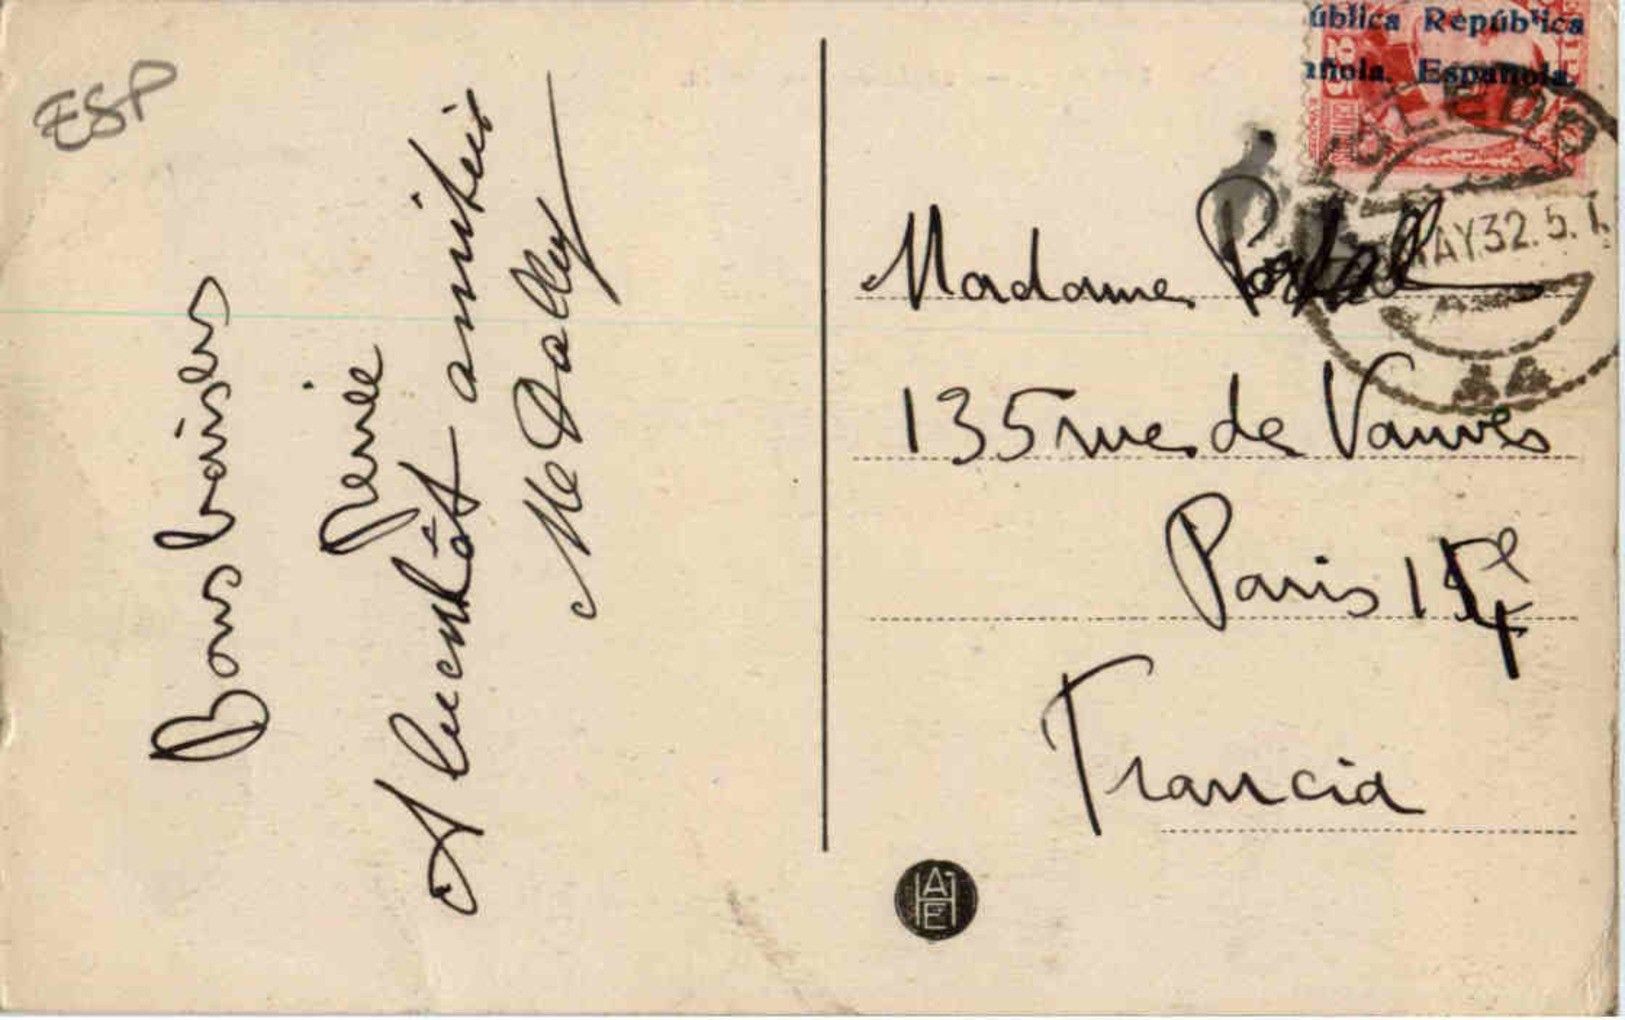 ESP
Bons baisers
Renée
A bientôt amitiés
M Dolley
ública República
añola. Española.
25
TOLEDO
MAY32.5.T
Madame Portal
135 rue de Vanves
Paris 14e
Francia
HAE